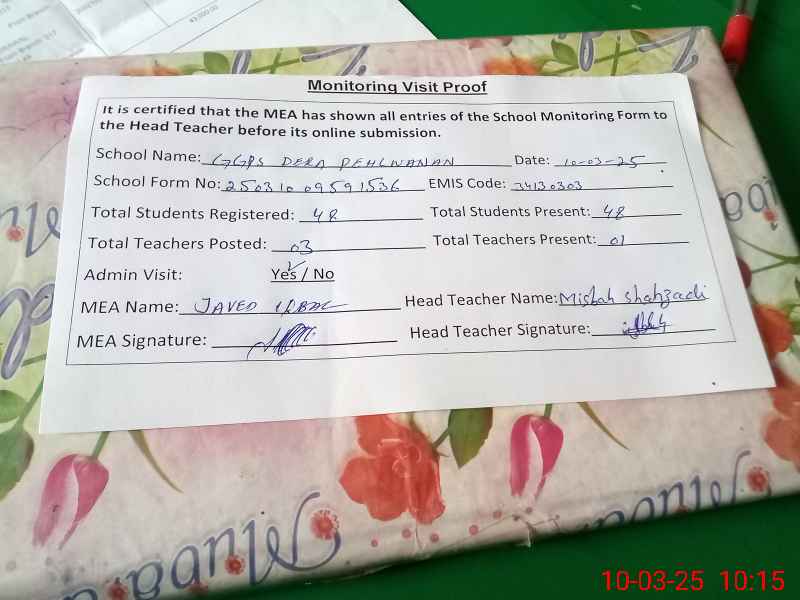 43,000.00
Monitoring Visit Proof
It is certified that the MEA has shown all entries of the School Monitoring Form to
the Head Teacher before its online submission.
School Name: GGPS DERA PEHLWANAN Date: 10-03-25
School Form No: 25031009591536 EMIS Code: 34130303
Total Students Registered: 48 Total Students Present: 48
Total Teachers Posted: 03 Total Teachers Present: 01
Admin Visit: Yes / No
MEA Name: JAVED IQBAL Head Teacher Name: Misbah Shahzadi
MEA Signature: Head Teacher Signature:
Mubara
10-03-25 10:15